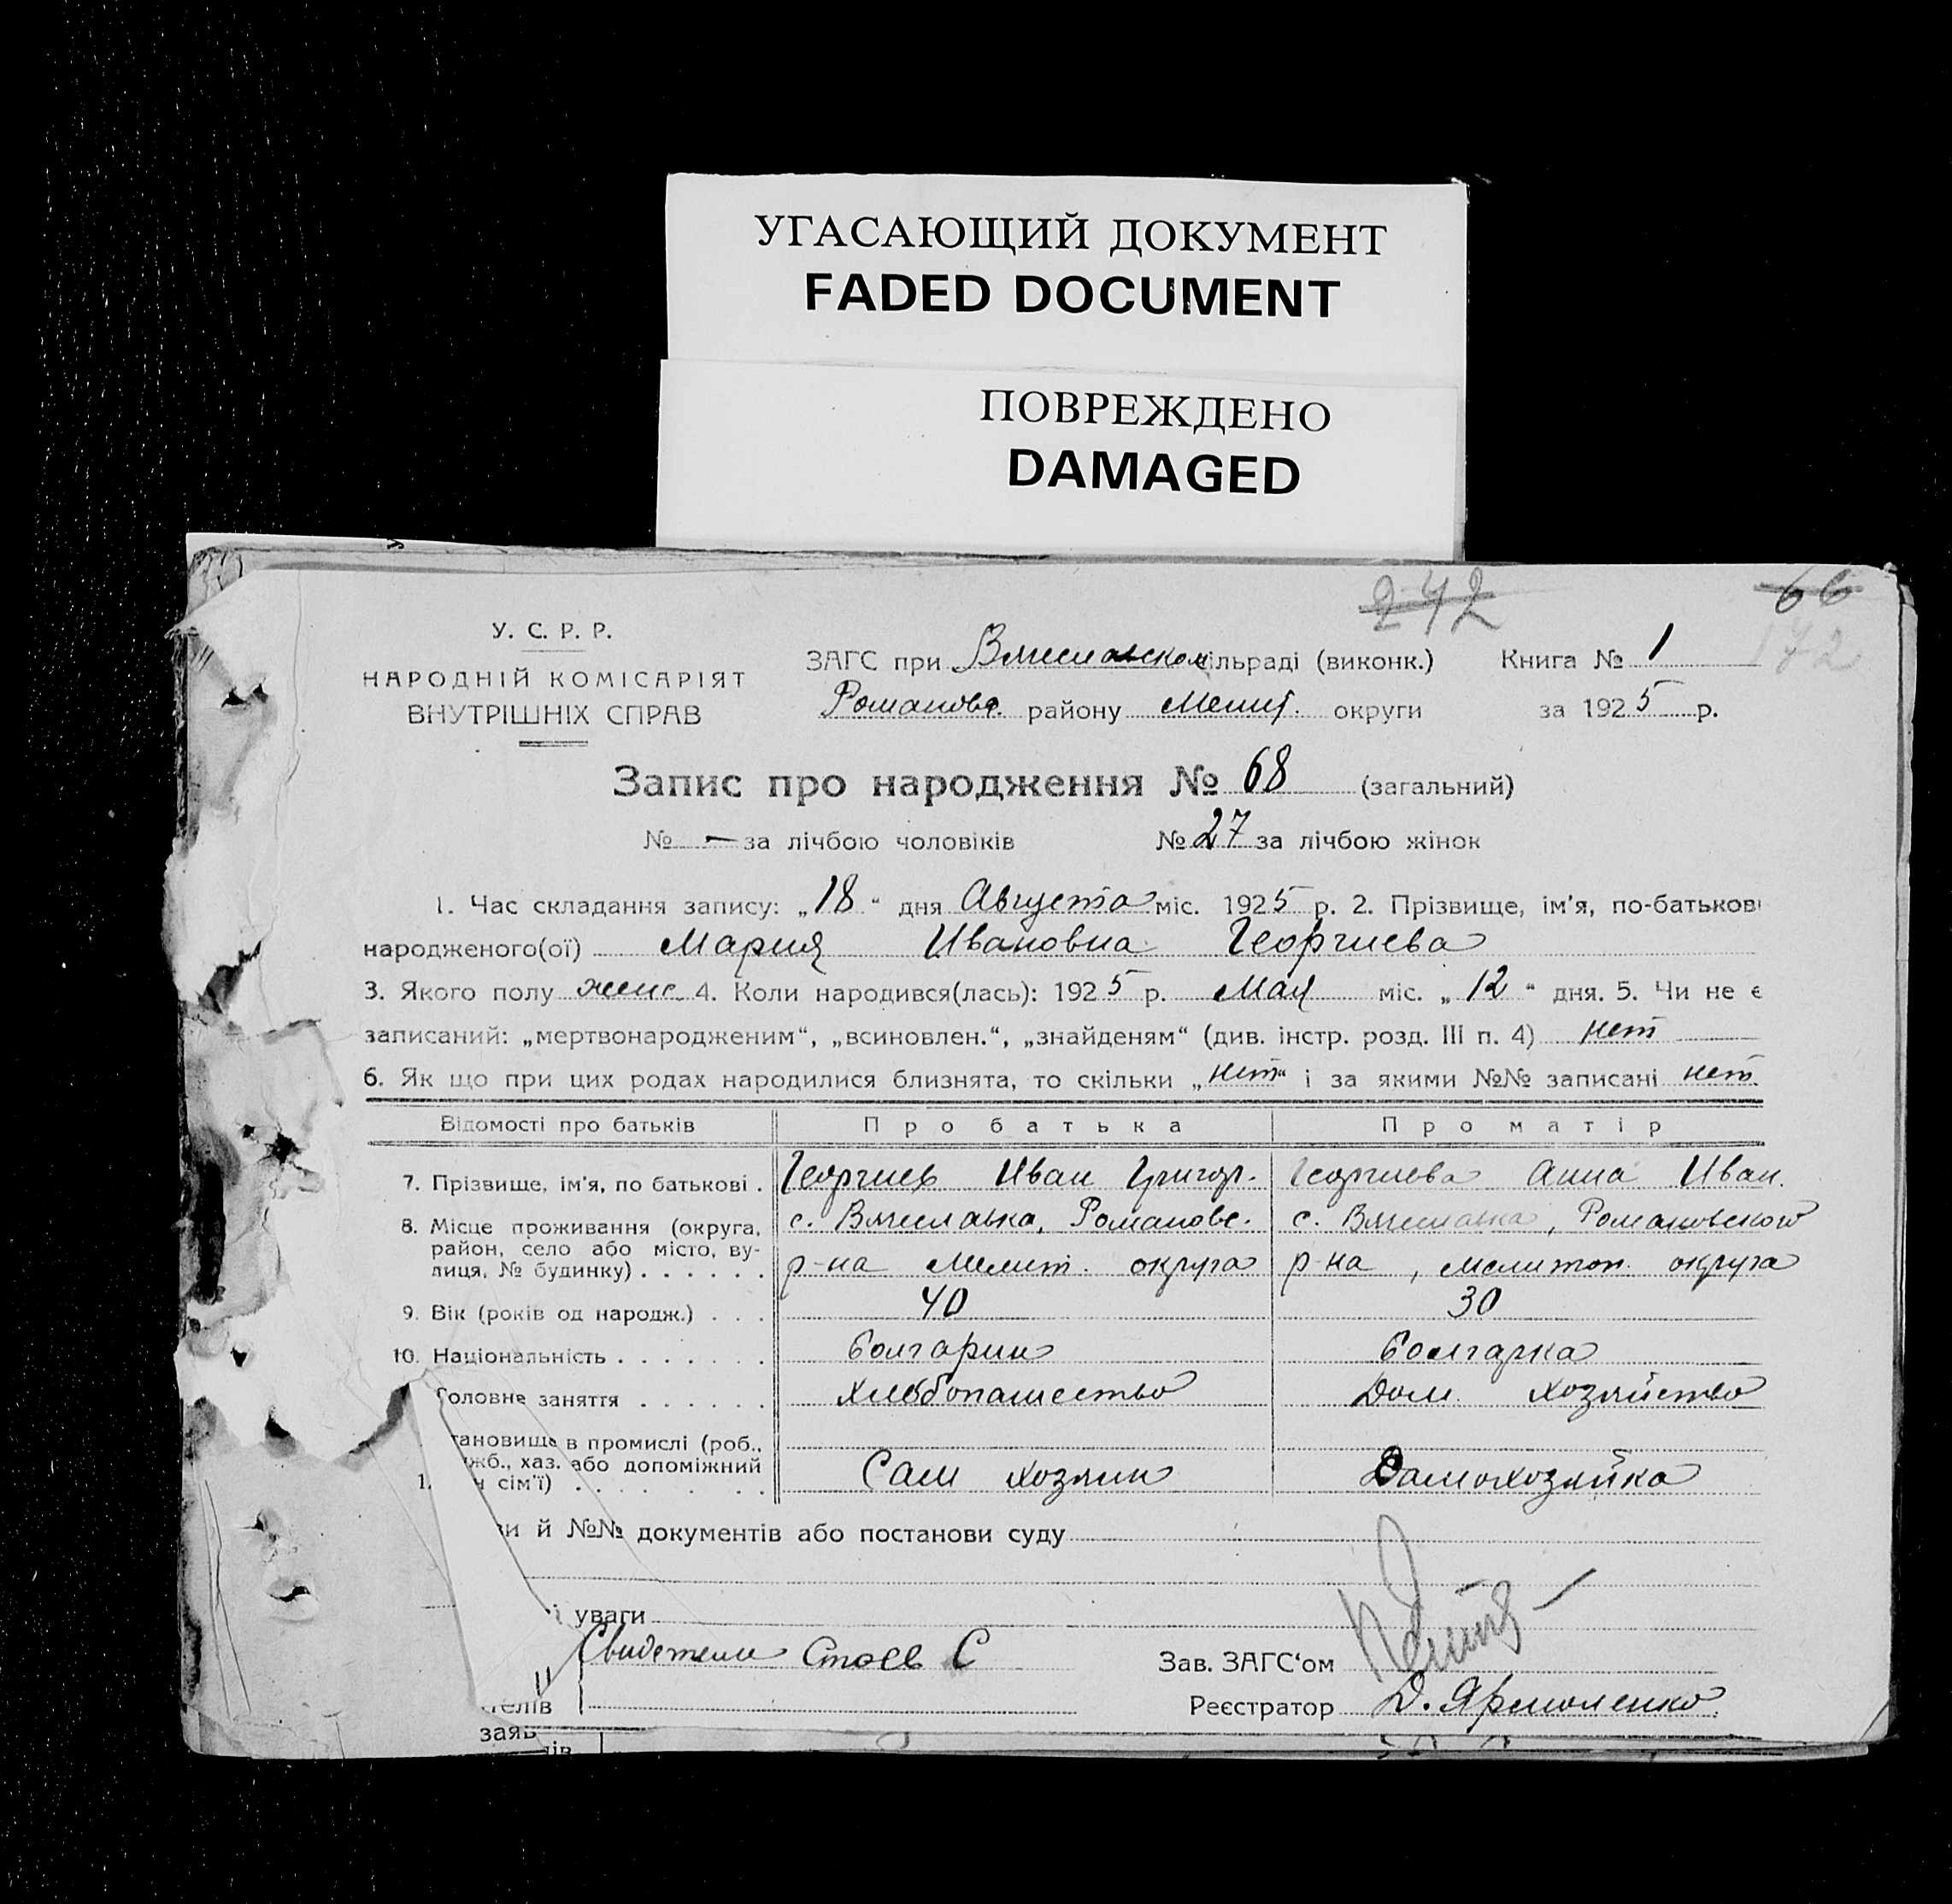 УГАСАЮЩИЙ ДОКУМЕНТ
FADED DOCUMENT
ПОВРЕЖДЕНО
DAMAGED
242
66
172
У. С. Р. Р.
НАРОДНІЙ КОМІСАРІЯТ
ВНУТРІШНІХ СПРАВ
ЗАГС при Вячеславском сільраді (виконк.) Книга № 1
Романовс. району Мелит. округи за 1925 р.
Запис про народження № 68 (загальний)
№ — за лічбою чоловіків № 27 за лічбою жінок
1. Час складання запису: „18“ дня Августа міс. 1925 р. 2. Прізвище, ім'я, по-батькові
народженого(ої) Мария Ивановна Георгиева
3. Якого полу женс. 4. Коли народився(лась): 1925 р. Мая міс. „12“ дня. 5. Чи не є
записаний: „мертвонародженим“, „всиновлен.“, „знайденям“ (див. інстр. розд. III п. 4) нет
6. Як що при цих родах народилися близнята, то скільки „нет“ і за якими №№ записані нет
Відомості про батьків Про батька Про матір
7. Прізвище, ім'я, по батькові . Георгиев Иван Григор. Георгиева Анна Иван.
8. Місце проживання (округа, с. Вячеславка, Романовс. с. Вячеславка, Романовского
район, село або місто, ву-
лиця, № будинку) . . . . . . р-на Мелит. округа р-на, мелитоп. округа
9. Вік (років од народж.) . . . 40 30
10. Національність . . . . . . . болгарин болгарка
Головне заняття . . . . . . хлебопашество Дом. хозяйство
тановище в промислі (роб.,
жб., хаз. або допоміжний
1. н сім'ї) . . . . . . . Сам хозяин Домохозяйка
ви й №№ документів або постанови суду
і уваги
Свидетели Стоев С
Зав. ЗАГС'ом
телів
Реєстратор Д. Ярмоленко
заяв
ів